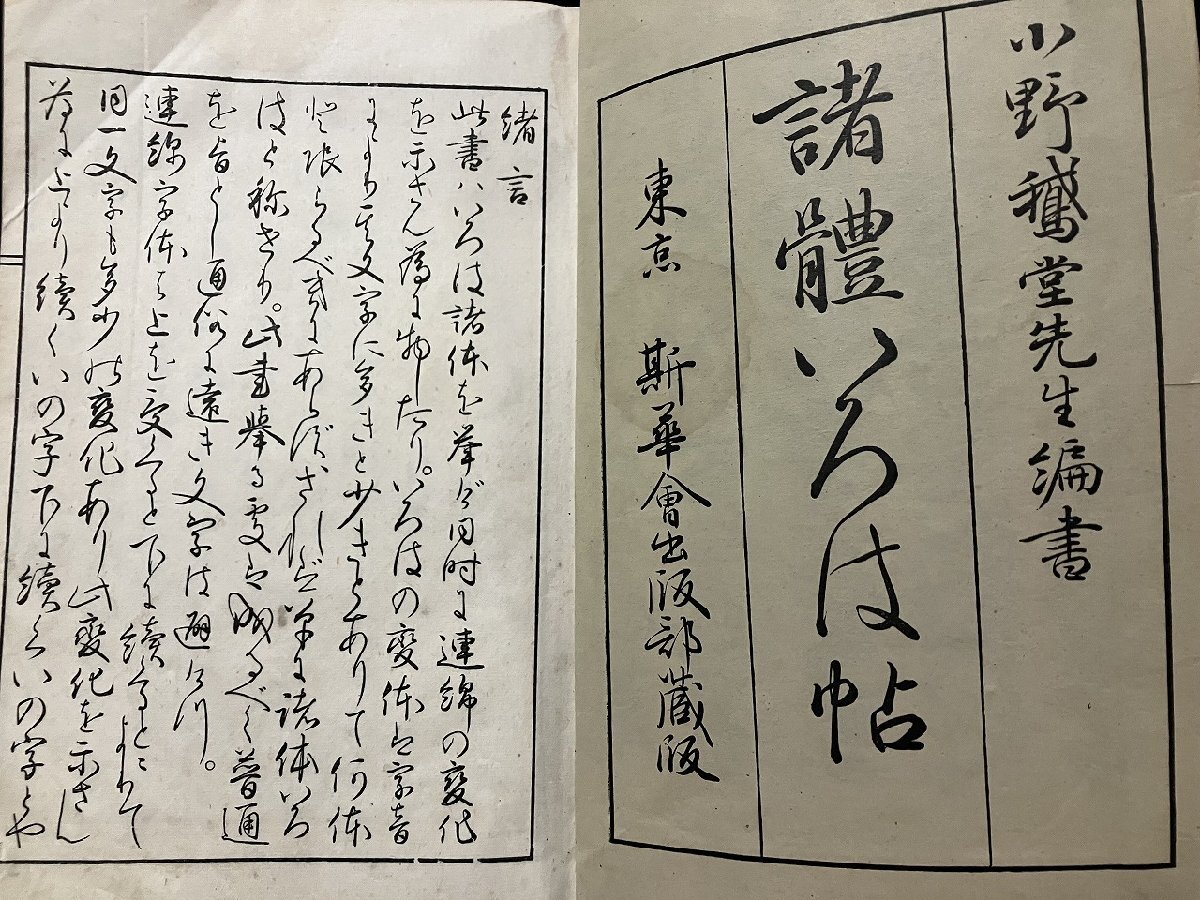 小野鵞堂先生編書
諸體いろは帖
東京 斯華會出版部藏版
緒言
此書ハいろは諸体を挙げ同時に連綿の変化
を示さん為に物したり。いろはの変体は字音
により其文字に多きと少きとありて何体
と限らるべきにあらず されど茲に諸体いろ
はと称せり。此書挙る處は成るべく普通
を旨とし通俗に遠き文字は避けつ。
連綿字体は上を受くると下に續くるとによりて
同一文字も多少の変化あり此変化を示さん
為に上より續くいの字下に續くいの字とや